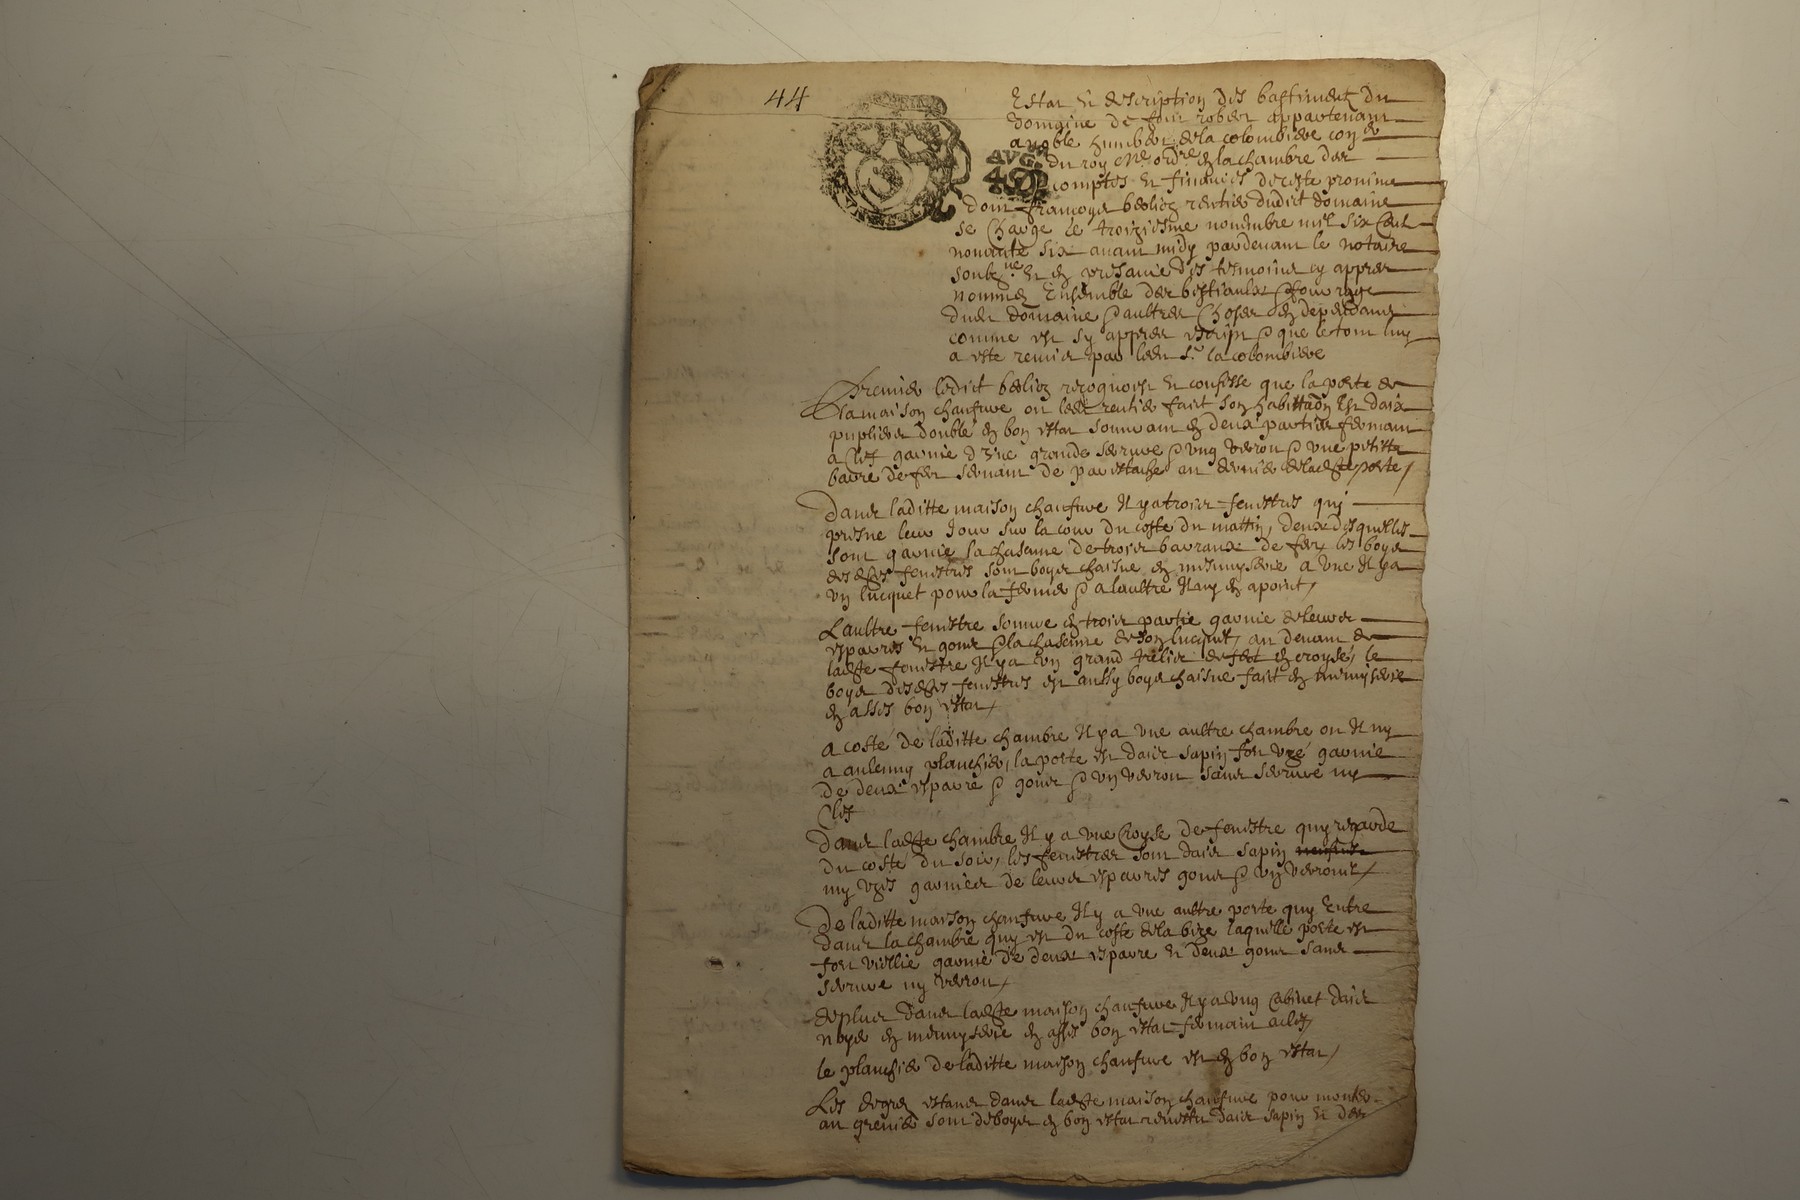 44
Estat et description des bastiment du
domaine de four robert appartenant
a noble humbert de la colombiere con.er
AVG.
du roy me ord.re en la chambre des
4 S
comptes et finances de ceste province
dont francoys rentier dudict domaine
se charge le troiziesme novembre mil six cent
nonante six avant midy pardevant le notaire
soubz.né et en presance des tesmoins cy appres
nommez Ensemble des bestiaulx & fourrage
dudt domaine & aultres choses en dependans
comme est sy appres escript & que le tout luy
a este remis par ledt s.r la colombiere
Premier ledict recognoist et confesse que la porte de
la maison chaufure ou ledt rentier faict son habittaon est daix
puplier double en bon estat souvrant en deux parties fermant
a clef garnie d'vne grande serrure & vng verrou & vne petitte
barre de fer servant de par estache au dernier de ladtte porte/
dans laditte maison chaufure Il y a trois fenestres qui
presne leur Jour sur la cour du coste du mattin, deux desquelles
sont garnie la chascune de trois barraux de fer, les boys
desdttes fenestres sont boys chaisne en menuyserie a vne Il y a
vn lucquet pour la fermer & a laultre Il ny en a point,
Laultre fenestre souvre en trois partie garnie de leurs
espares et gons & la chascune de son lucquet, au devant de
ladtte fenestre Il y a vn grand trelier de fert en croysé, le
boys desdttes fenestres est aussy boys chaisne faict en menuyserie
en asses bon estat,
a costé de laditte chambre Il y a vne aultre chambre ou Il ny
a aulcung planchier, la porte est daix sapin fort vzé garnie
de deux espare & gons & vn verrou sans serrure ny
clef
Dans ladtte chambre Il y a vne croyse de fenestre quy regarde
du costé du soir, les fenestres sont daix sapin
my vzés garnies de leurs espares gons & vn verroult,
De laditte maison chaufure Il y a vne aultre porte quy Entre
dans la chambre quy est du coste de la bize laquelle porte est
fort viellie garnie de deux espare et deux gons sans
serrure ny verrou,
de plus dans ladtte maison chaufure Il y a vng cabinet daix
noyer en menuyserie en asses bon estat fermant a clef
le planchier de laditte maison chaufure est en bon estat,
Les degrez estans dans ladtte maison chaufure pour monter
au grenier sont de boys en bon estat revestu daix sapin et des